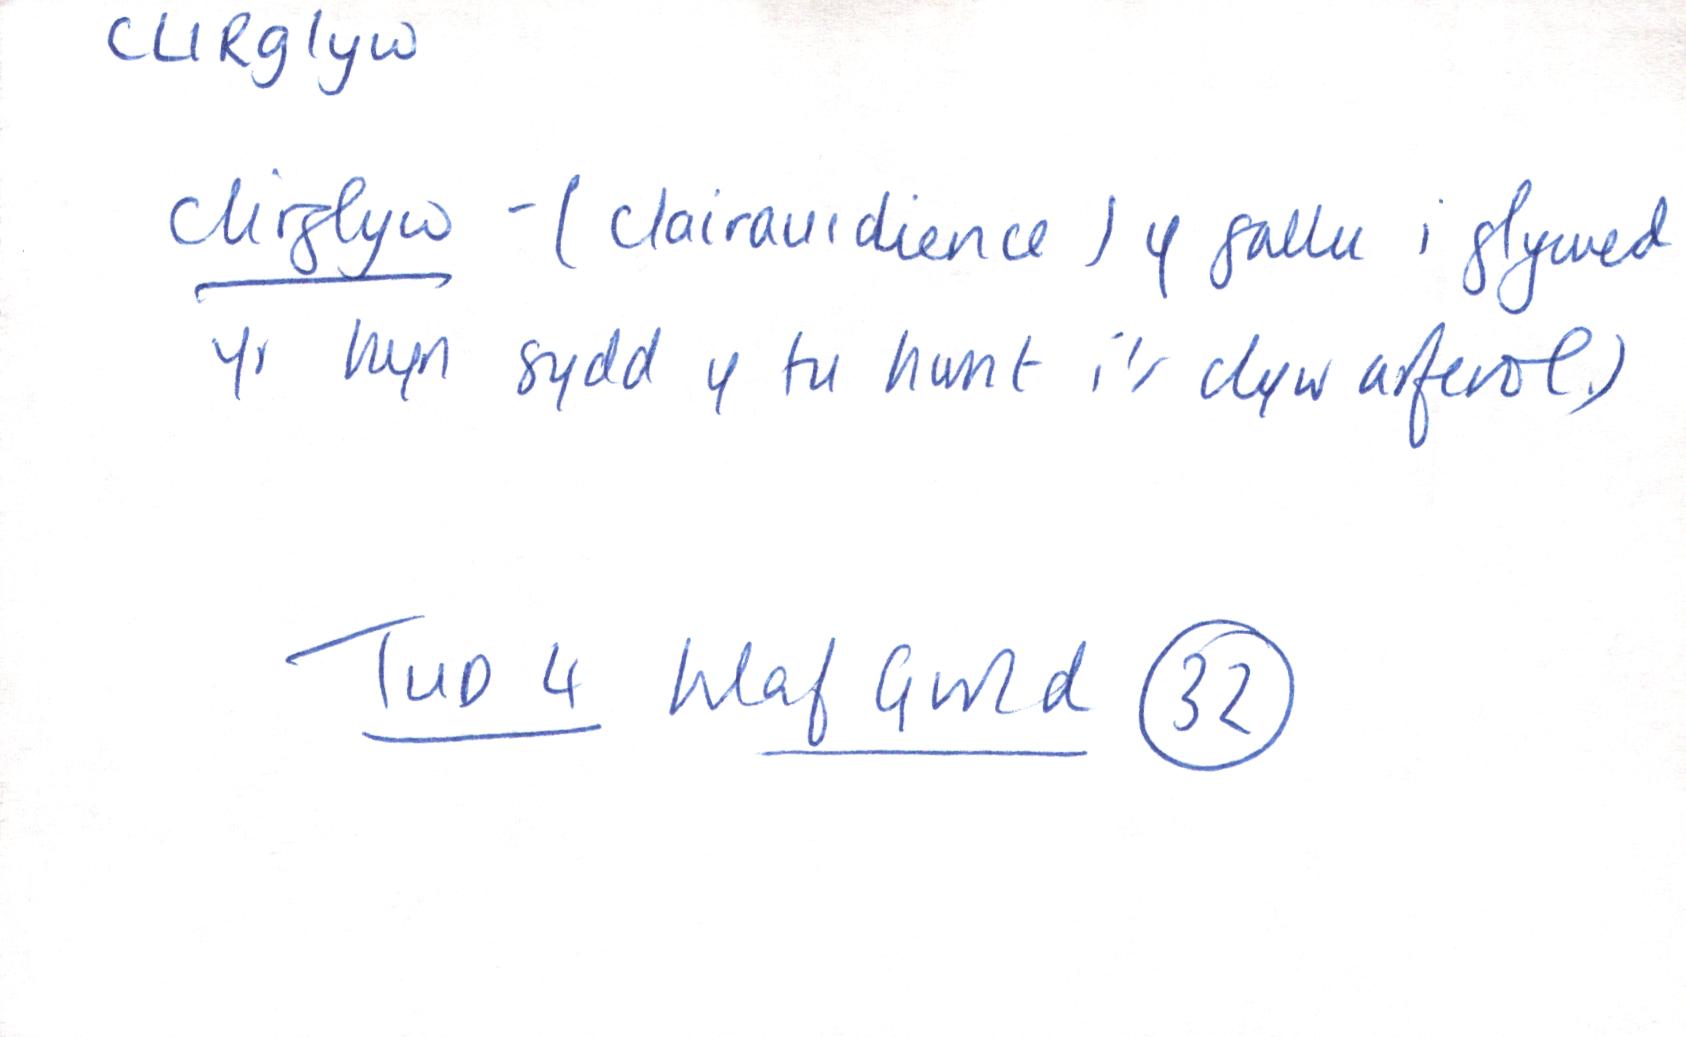 CLIRglyw
Clirglyw - ( Clairauidience ) y gallu i glywed
yr hyn sydd y tu hwnt i'r clyw arferol.)
TUD 4 Llafar Gwlad 32